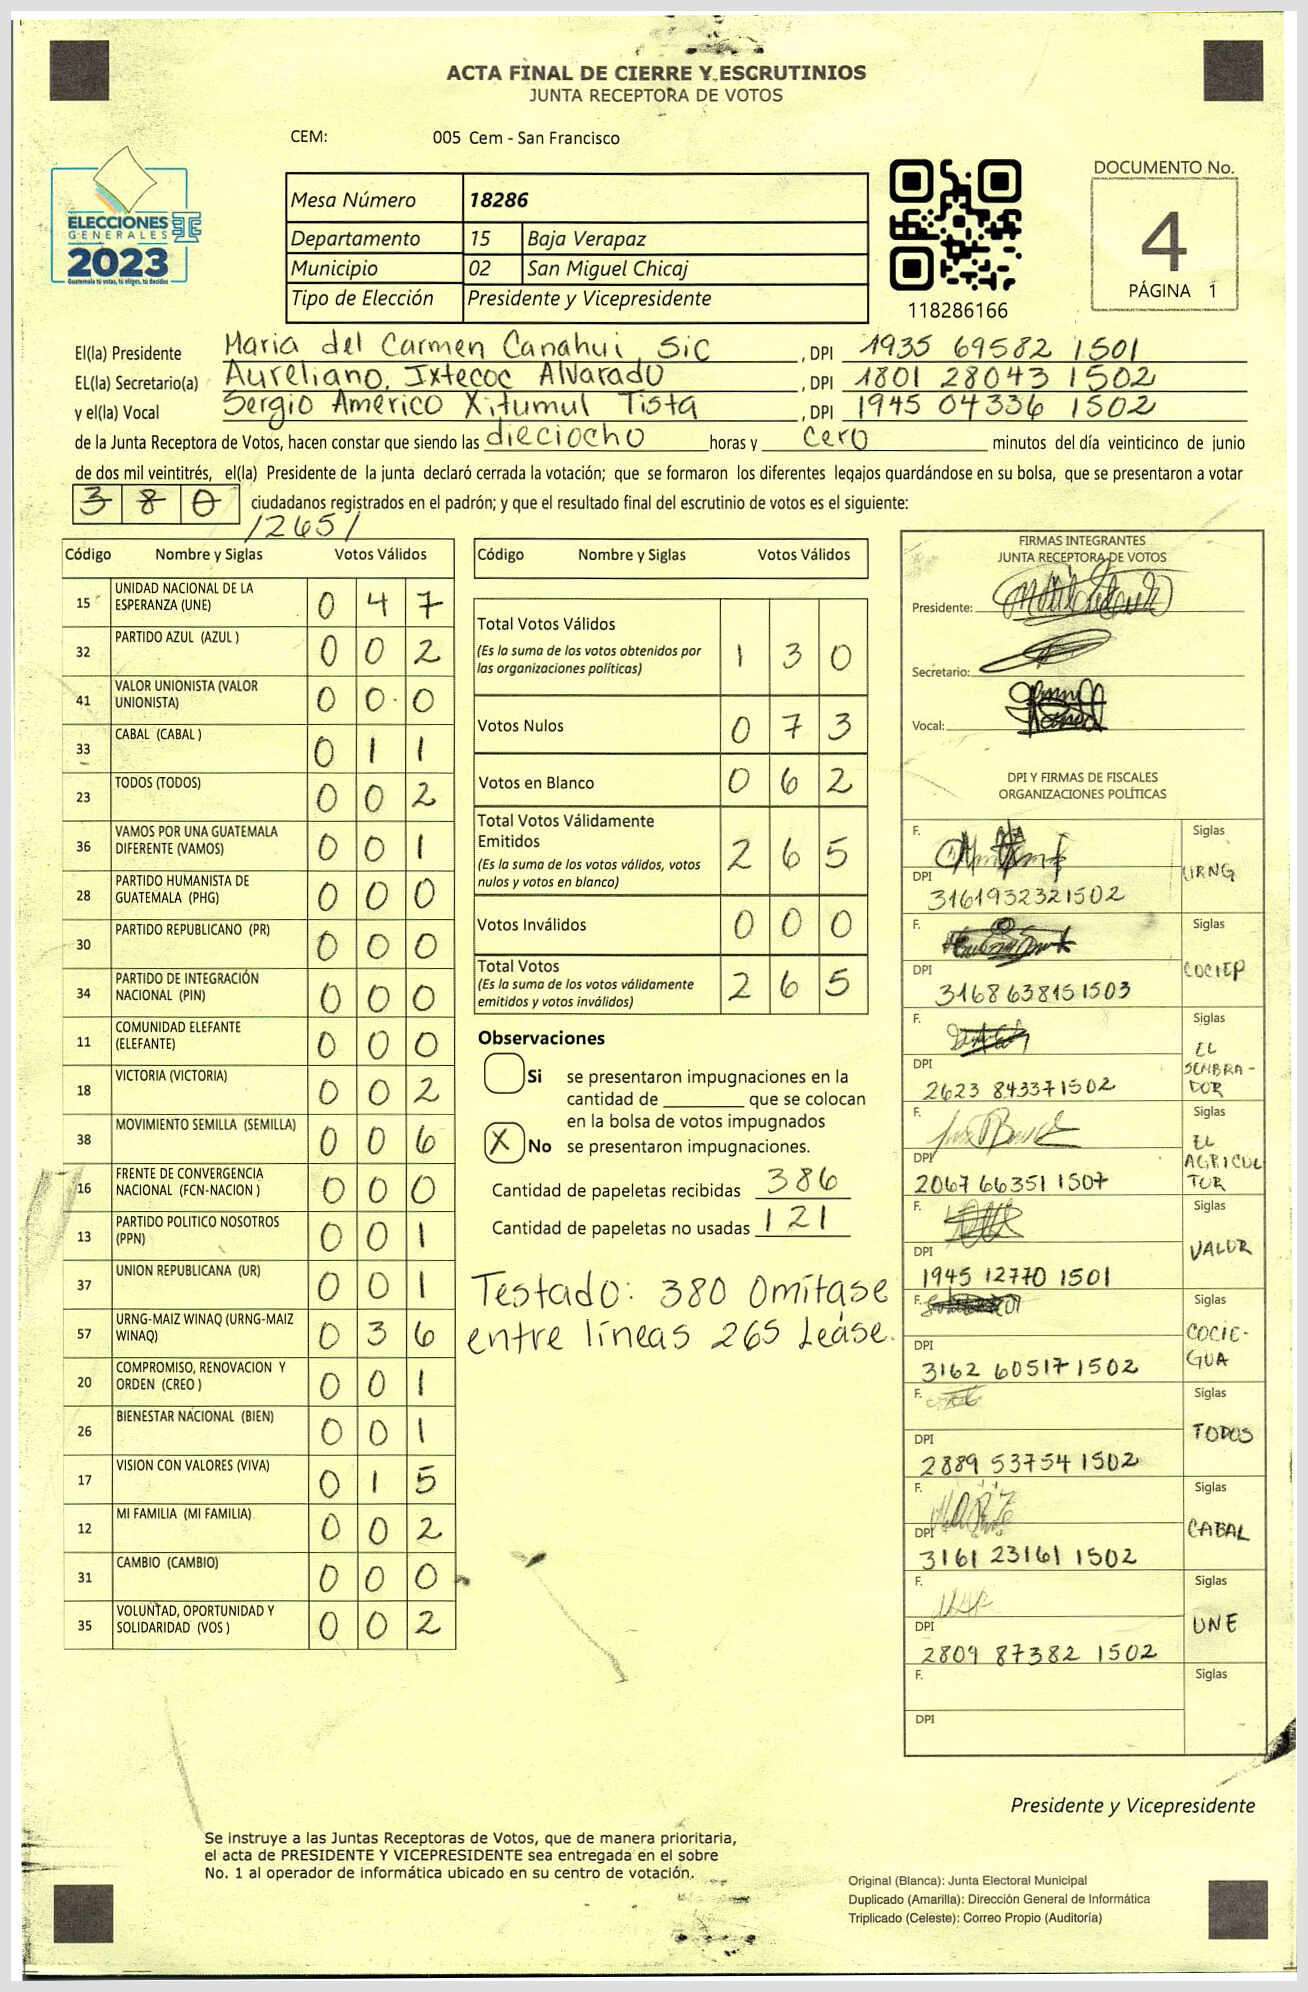 ACTA FINAL DE CIERRE Y ESCRUTINIOS
JUNTA RECEPTORA DE VOTOS
CEM: 005 Cem - San Francisco
ELECCIONES
GENERALES
2023
Guatemala tú votas, tú eliges, tú decides
Mesa Número 18286
Departamento 15 Baja Verapaz
Municipio 02 San Miguel Chicaj
Tipo de Elección Presidente y Vicepresidente
118286166
DOCUMENTO No.
4
PÁGINA 1
El(la) Presidente Maria del Carmen Canahui Sic , DPI 1935 69582 1501
EL(la) Secretario(a) Aureliano, Ixtecoc Alvarado , DPI 1801 28043 1502
y el(la) Vocal Sergio Américo Xitumul Tista , DPI 1945 04336 1502
de la Junta Receptora de Votos, hacen constar que siendo las dieciocho horas y cero minutos del día veinticinco de junio
de dos mil veintitrés, el(la) Presidente de la junta declaró cerrada la votación; que se formaron los diferentes legajos guardándose en su bolsa, que se presentaron a votar
380 ciudadanos registrados en el padrón; y que el resultado final del escrutinio de votos es el siguiente:
/265/
Código Nombre y Siglas Votos Válidos
15 UNIDAD NACIONAL DE LA ESPERANZA (UNE) 0 4 7
32 PARTIDO AZUL (AZUL ) 0 0 2
41 VALOR UNIONISTA (VALOR UNIONISTA) 0 0 0
33 CABAL (CABAL ) 0 1 1
23 TODOS (TODOS) 0 0 2
36 VAMOS POR UNA GUATEMALA DIFERENTE (VAMOS) 0 0 1
28 PARTIDO HUMANISTA DE GUATEMALA (PHG) 0 0 0
30 PARTIDO REPUBLICANO (PR) 0 0 0
34 PARTIDO DE INTEGRACIÓN NACIONAL (PIN) 0 0 0
11 COMUNIDAD ELEFANTE (ELEFANTE) 0 0 0
18 VICTORIA (VICTORIA) 0 0 2
38 MOVIMIENTO SEMILLA (SEMILLA) 0 0 6
16 FRENTE DE CONVERGENCIA NACIONAL (FCN-NACION ) 0 0 0
13 PARTIDO POLITICO NOSOTROS (PPN) 0 0 1
37 UNION REPUBLICANA (UR) 0 0 1
57 URNG-MAIZ WINAQ (URNG-MAIZ WINAQ) 0 3 6
20 COMPROMISO, RENOVACION Y ORDEN (CREO ) 0 0 1
26 BIENESTAR NACIONAL (BIEN) 0 0 1
17 VISION CON VALORES (VIVA) 0 1 5
12 MI FAMILIA (MI FAMILIA) 0 0 2
31 CAMBIO (CAMBIO) 0 0 0
35 VOLUNTAD, OPORTUNIDAD Y SOLIDARIDAD (VOS ) 0 0 2
Código Nombre y Siglas Votos Válidos
Total Votos Válidos
(Es la suma de los votos obtenidos por las organizaciones políticas) 1 3 0
Votos Nulos 0 7 3
Votos en Blanco 0 6 2
Total Votos Válidamente Emitidos
(Es la suma de los votos válidos, votos nulos y votos en blanco) 2 6 5
Votos Inválidos 0 0 0
Total Votos
(Es la suma de los votos válidamente emitidos y votos inválidos) 2 6 5
Observaciones
Si se presentaron impugnaciones en la
cantidad de ________ que se colocan
en la bolsa de votos impugnados
X No se presentaron impugnaciones.
Cantidad de papeletas recibidas 386
Cantidad de papeletas no usadas 121
Testado: 380 Omítase
entre líneas 265 Léase.
FIRMAS INTEGRANTES
JUNTA RECEPTORA DE VOTOS
Presidente:
Secretario:
Vocal:
DPI Y FIRMAS DE FISCALES
ORGANIZACIONES POLÍTICAS
F. Siglas
DPI URNG
3161932321502
F. Siglas
DPI COCIEP
3168638151503
F. Siglas
DPI EL SEMBRADOR
2623 843371502
F. Siglas
DPI EL AGRICULTOR
2067 66351 1507
F. Siglas
DPI VALOR
1945 12770 1501
F. Siglas
DPI COCIE-GUA
3162 60517 1502
F. Siglas
DPI TODOS
2889 53754 1502
F. Siglas
DPI CABAL
3161 23161 1502
F. Siglas
DPI UNE
2809 87382 1502
F. Siglas
DPI
Presidente y Vicepresidente
Se instruye a las Juntas Receptoras de Votos, que de manera prioritaria,
el acta de PRESIDENTE Y VICEPRESIDENTE sea entregada en el sobre
No. 1 al operador de informática ubicado en su centro de votación.
Original (Blanca): Junta Electoral Municipal
Duplicado (Amarilla): Dirección General de Informática
Triplicado (Celeste): Correo Propio (Auditoría)